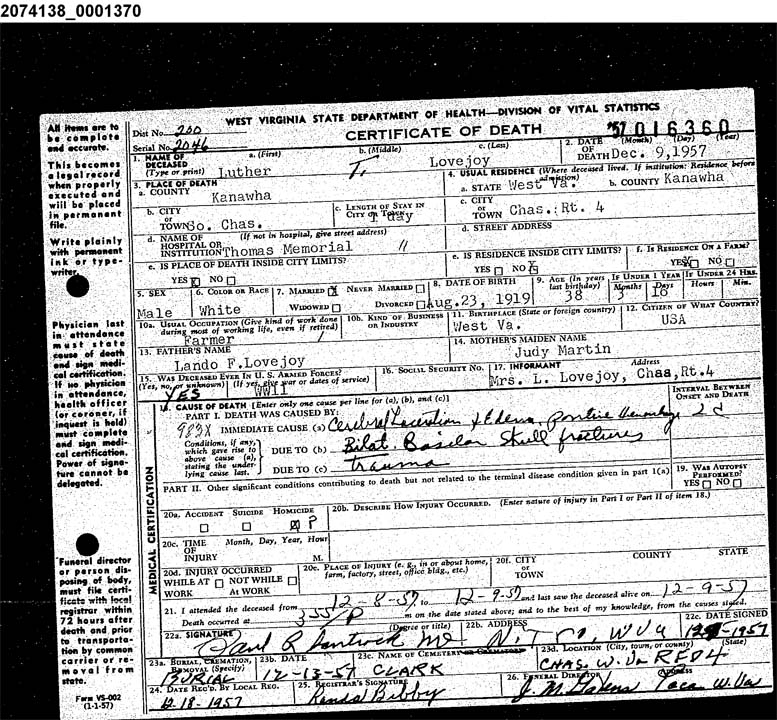 2074138_0001370
WEST VIRGINIA STATE DEPARTMENT OF HEALTH—DIVISION OF VITAL STATISTICS
CERTIFICATE OF DEATH
'57 016360
Dist No. 200
Serial No. 2046
All items are to be complete and accurate.
This becomes a legal record when properly executed and will be placed in permanent file.
Write plainly with permanent ink or typewriter.
Physician last in attendance must state cause of death and sign medical certification. If no physician in attendance, health officer (or coroner, if inquest is held) must complete and sign medical certification. Power of signature cannot be delegated.
Funeral director or person disposing of body, must file certificate with local registrar within 72 hours after death and prior to transportation by common carrier or removal from state.
Form VS-002
(1-1-57)
1. NAME OF DECEASED (Type or print) a. (First) Luther b. (Middle) T. c. (Last) Lovejoy
2. DATE OF DEATH (Month) (Day) (Year) Dec. 9,1957
3. PLACE OF DEATH
a. COUNTY Kanawha
4. USUAL RESIDENCE (Where deceased lived. If institution: Residence before admission)
a. STATE West Va. b. COUNTY Kanawha
b. CITY or TOWN So. Chas.
c. LENGTH OF STAY IN CITY or TOWN 1 day
c. CITY or TOWN Chas. Rt. 4
d. NAME OF HOSPITAL OR INSTITUTION (If not in hospital, give street address) Thomas Memorial
d. STREET ADDRESS
e. IS PLACE OF DEATH INSIDE CITY LIMITS?
YES X NO
e. IS RESIDENCE INSIDE CITY LIMITS?
YES NO X
f. IS RESIDENCE ON A FARM?
YES X NO
5. SEX Male
6. COLOR OR RACE White
7. MARRIED X NEVER MARRIED
WIDOWED DIVORCED
8. DATE OF BIRTH Aug.23, 1919
9. AGE (In years last birthday) 38
IF UNDER 1 YEAR Months 3 Days 16
IF UNDER 24 HRS. Hours Min.
10a. USUAL OCCUPATION (Give kind of work done during most of working life, even if retired) Farmer
10b. KIND OF BUSINESS OR INDUSTRY
11. BIRTHPLACE (State or foreign country) West Va.
12. CITIZEN OF WHAT COUNTRY? USA
13. FATHER'S NAME Lando F.Lovejoy
14. MOTHER'S MAIDEN NAME Judy Martin
15. WAS DECEASED EVER IN U. S. ARMED FORCES? (Yes, no, or unknown) (If yes, give war or dates of service) YES WWII
16. SOCIAL SECURITY NO.
17. INFORMANT Address Mrs. L. Lovejoy, Chas,Rt.4
MEDICAL CERTIFICATION
18. CAUSE OF DEATH [Enter only one cause per line for (a), (b), and (c)]
INTERVAL BETWEEN ONSET AND DEATH
PART I. DEATH WAS CAUSED BY:
983X IMMEDIATE CAUSE (a) Cerebral Laceration & Edema, pontine Hemorrhage 2 d
Conditions, if any, which gave rise to above cause (a), stating the underlying cause last.
DUE TO (b) Bilat. Baselar Skull fractures
DUE TO (c) Trauma
PART II. Other significant conditions contributing to death but not related to the terminal disease condition given in part 1(a)
19. WAS AUTOPSY PERFORMED?
YES NO
20a. ACCIDENT SUICIDE HOMICIDE
X P
20b. DESCRIBE HOW INJURY OCCURRED. (Enter nature of injury in Part I or Part II of item 18.)
20c. TIME OF INJURY Month, Day, Year, Hour M.
20d. INJURY OCCURRED
WHILE AT WORK NOT WHILE AT WORK
20e. PLACE OF INJURY (e. g., in or about home, farm, factory, street, office bldg., etc.)
20f. CITY OR TOWN COUNTY STATE
21. I attended the deceased from 12-8-57 to 12-9-57 and last saw the deceased alive on 12-9-57
Death occurred at 355/P m on the date stated above; and to the best of my knowledge, from the causes stated.
22a. SIGNATURE (Degree or title) MD
22b. ADDRESS Nitro, WVa
22c. DATE SIGNED
23a. BURIAL, CREMATION, REMOVAL (Specify) BURIAL
23b. DATE 12-13-57
23c. NAME OF CEMETERY OR CREMATORY CLARK
23d. LOCATION (City, town, or county) (State) CHAS. W.Va RFD 4
24. DATE REC'D. BY LOCAL REG. 12-18-1957
25. REGISTRAR'S SIGNATURE Bibby
26. FUNERAL DIRECTOR ADDRESS J. M. W. Va